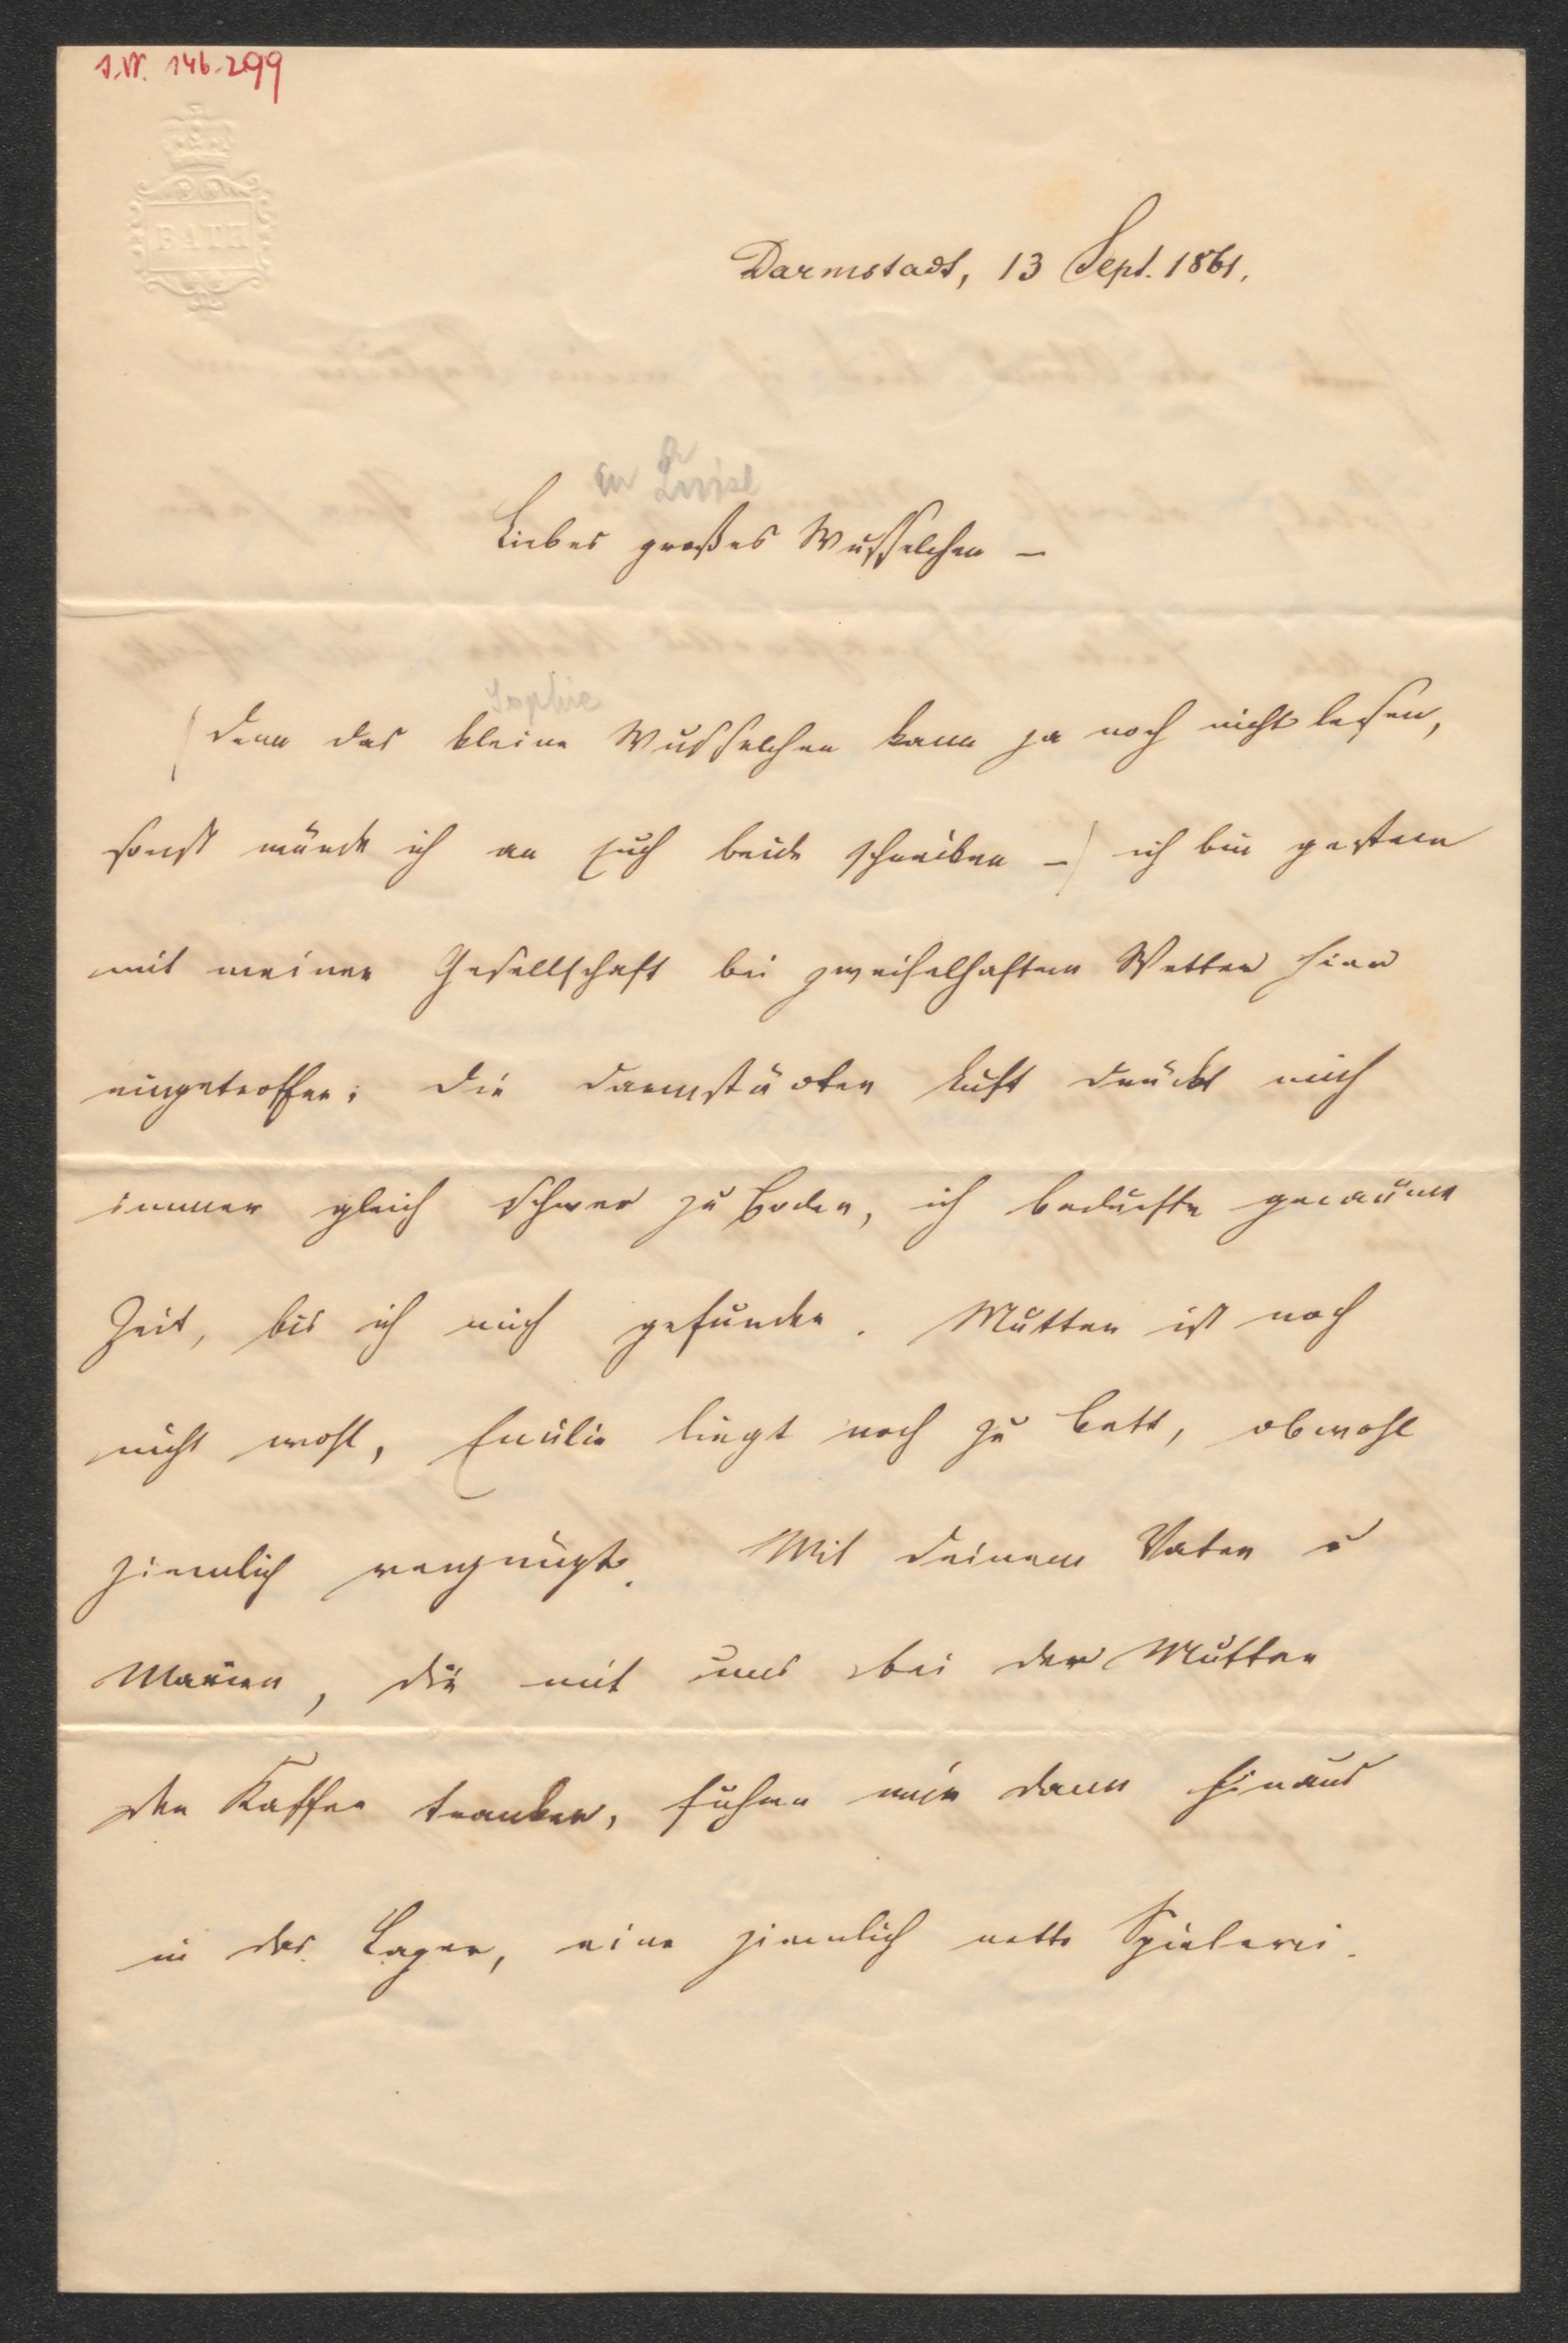 J.N. 146.299
BATH
Darmstadt, 13 Sept. 1861.
an Luise
Liebes großes Wusselchen –
Sophie
(denn das kleine Wusselchen kann ja noch nicht lesen,
sonst würde ich an Euch beide schreiben –) ich bin gestern
mit meiner Gesellschaft bei zweifelhaftem Wetter hier
eingetroffen; die darmstädter Luft drückt mich
immer gleich schwer zu Boden, ich bedurfte geraume
Zeit, bis ich mich gefunden. Mutter ist noch
nicht wohl, Emilie liegt noch zu Bett, obwohl
ziemlich vergnügt. Mit Deinem Vater u
Marien, die mit uns bei der Mutter
den Kaffee tranken, fuhren wir dann hinaus
in das Lager, eine ziemlich nette Spielerei.